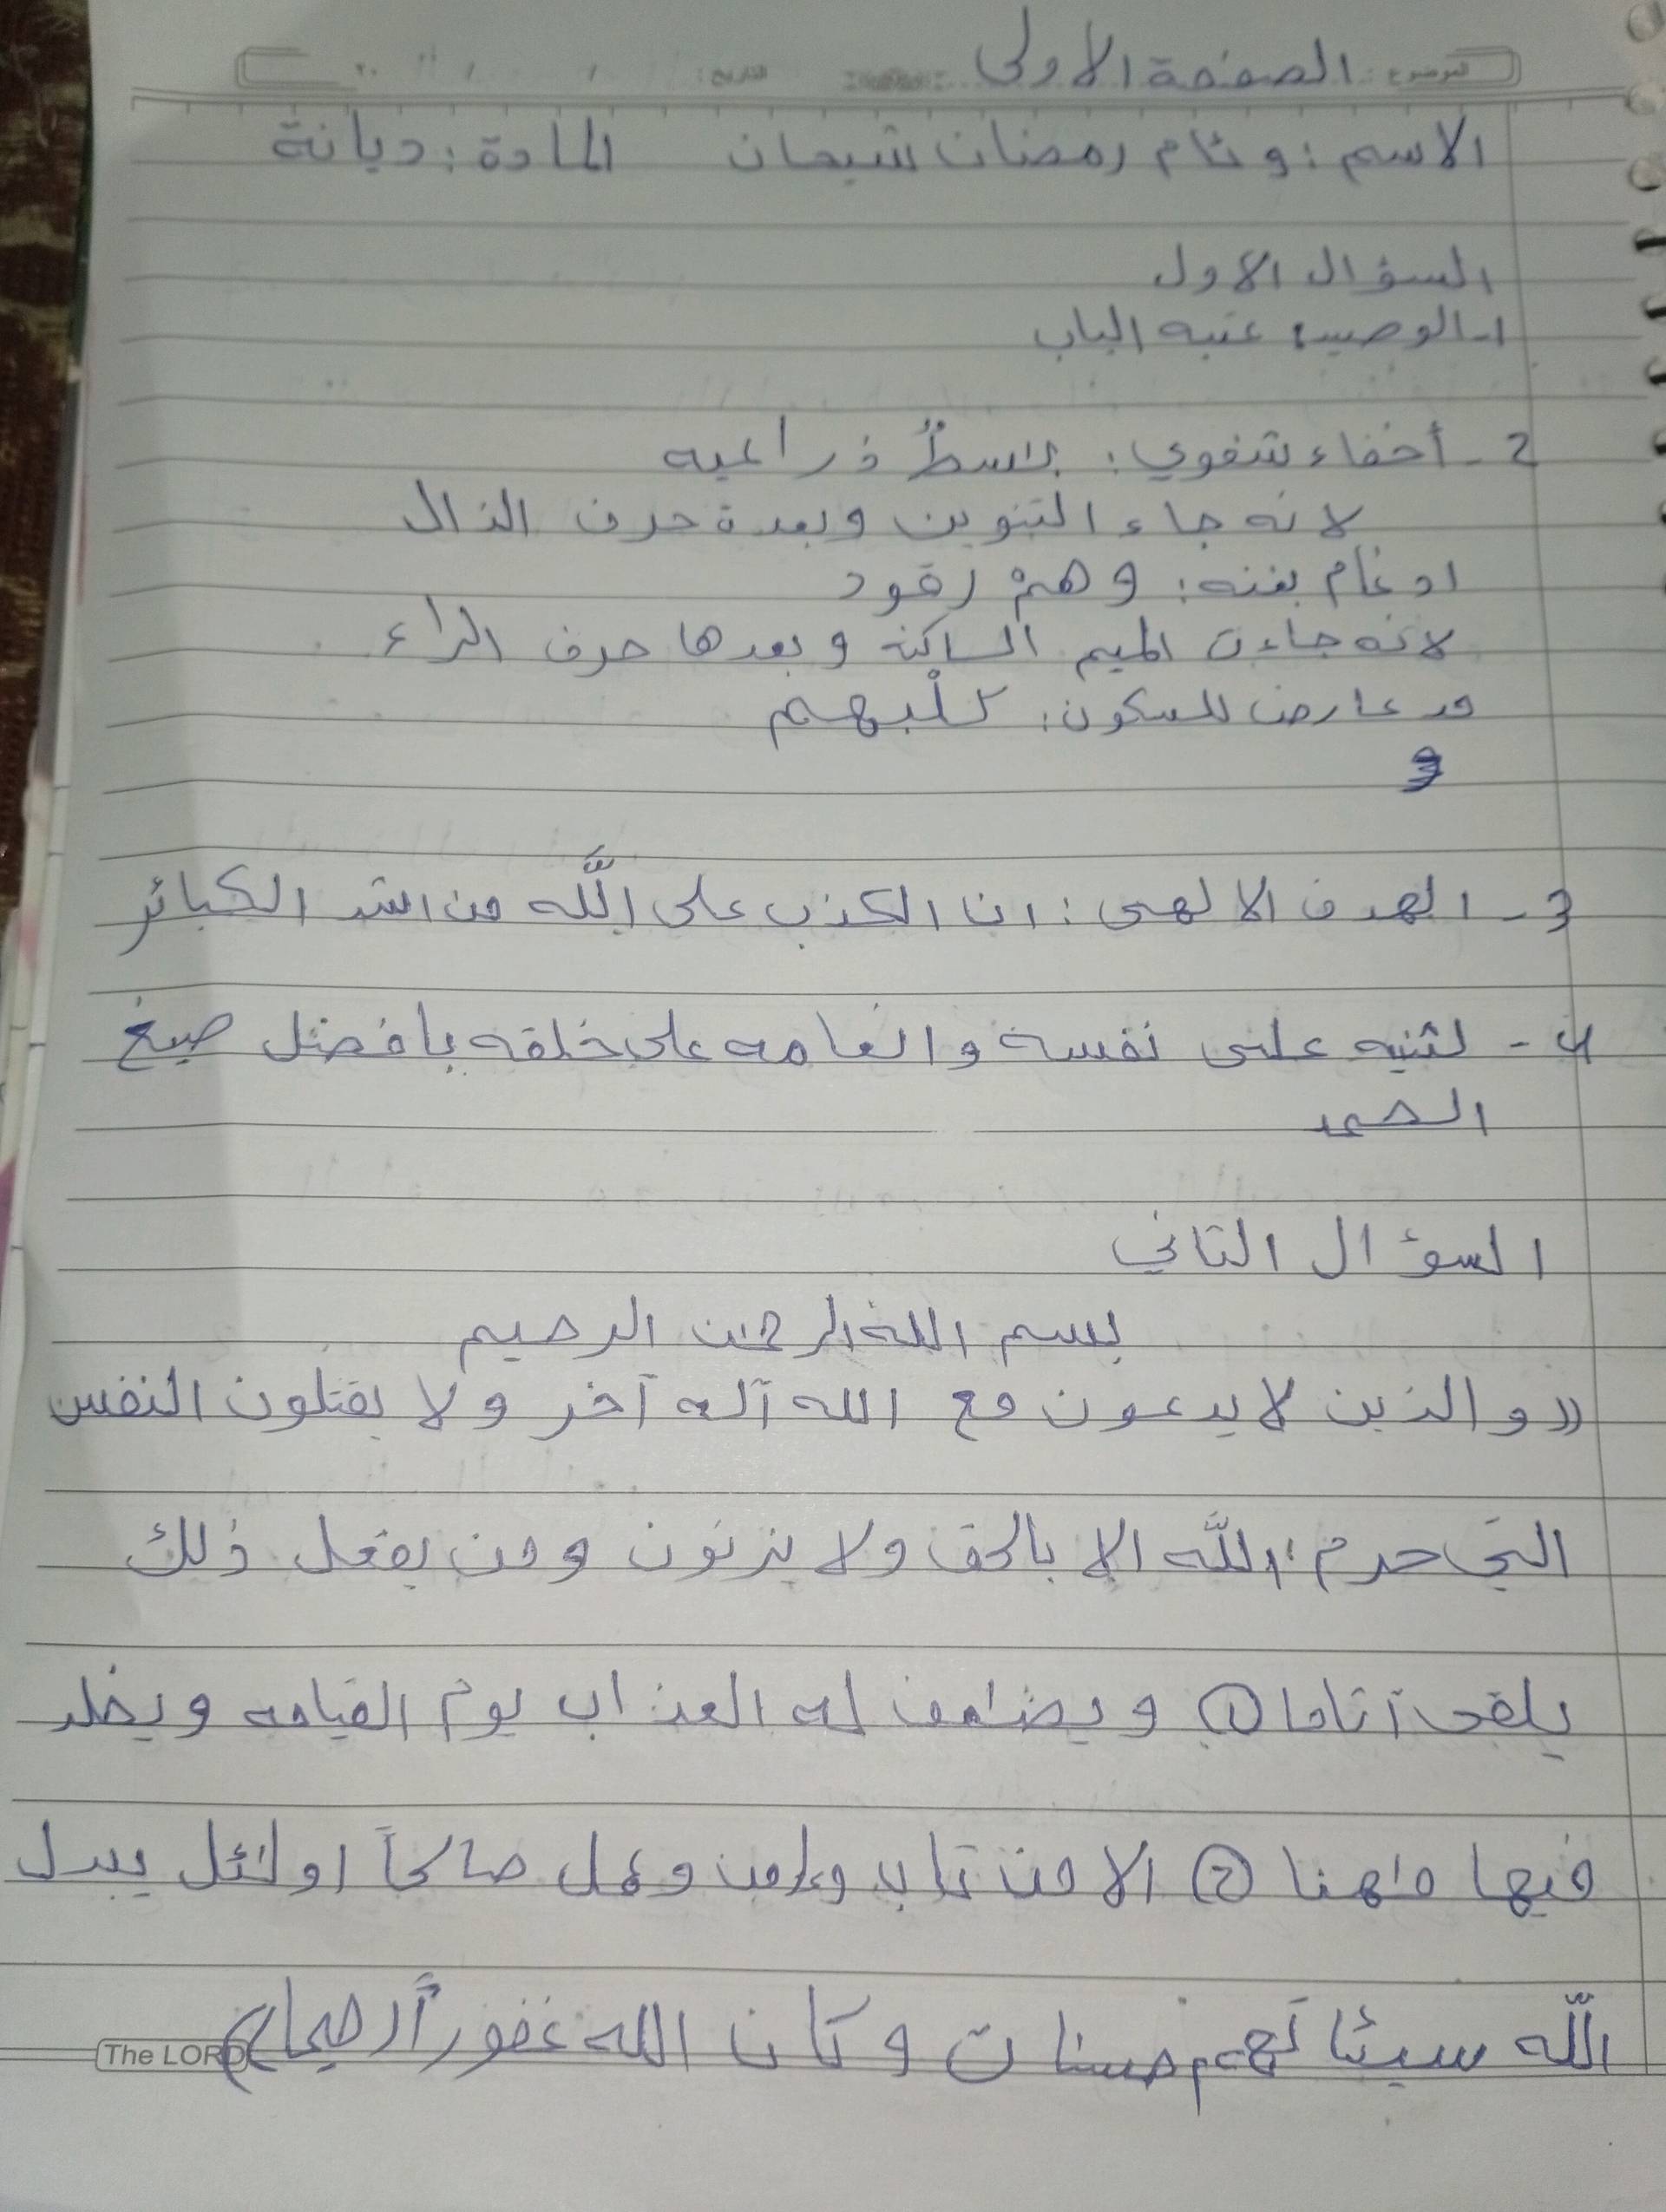 الموضوع: الصفحة الاولى التاريخ: / / ٢٠
الاسم: وئام رمضان شيحان المادة: ديانة
السؤال الاول
1- الوصيد: عتبه الباب
2- أخفاء شفوي: باسطٌ ذراعيه
لانه جاء التنوين وبعدة حرف الذال
ادغام بغنه: وهمْ رقود
لانه جاءت الميم الساكنة وبعدها حرف الراء
مد عارض للسكون: كلْبهم
3- الهدف الالهى: ان الكذب على اللَّه من اشد الكبائر
4- لثنيه على نفسة وانعامه على خلقه بافضل صيغ
الحمد
السوء ال الثاني
بسم الله الرحمن الرحيم
((والذين لا يدعون مع الله آله آخر ولا يقتلون النفس
التي حرم اللَّه الا بالحق ولا يزنون ومن يفعل ذلك
يلقى آثاما (1) ويضاعف له العذاب يوم القيامه ويخلد
فيها مهنا (2) الا من تاب وءامن وعمل صالحاً اولئل يبدل
اللّه سيئاتهم حسنات وكان الله غفوراً رحيما))
The LORD